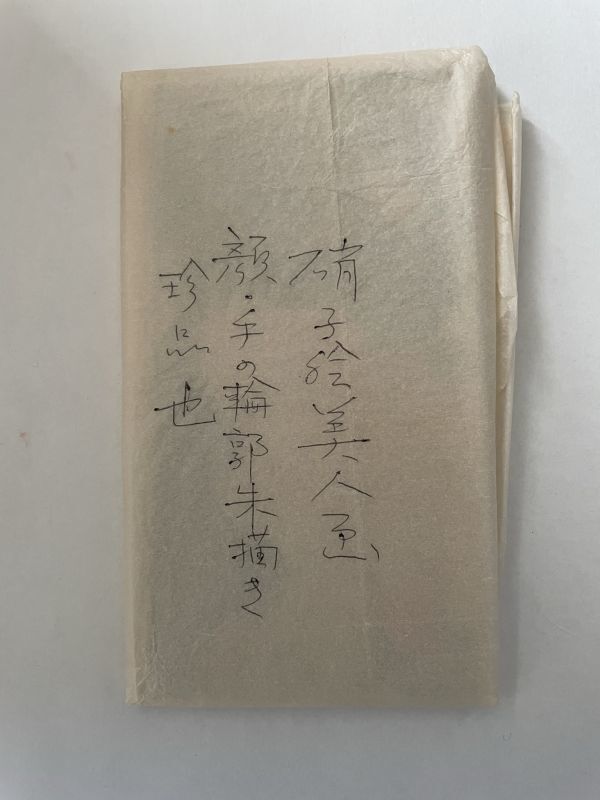 硝子絵美人画
顔・手の輪郭朱描き
珍品也